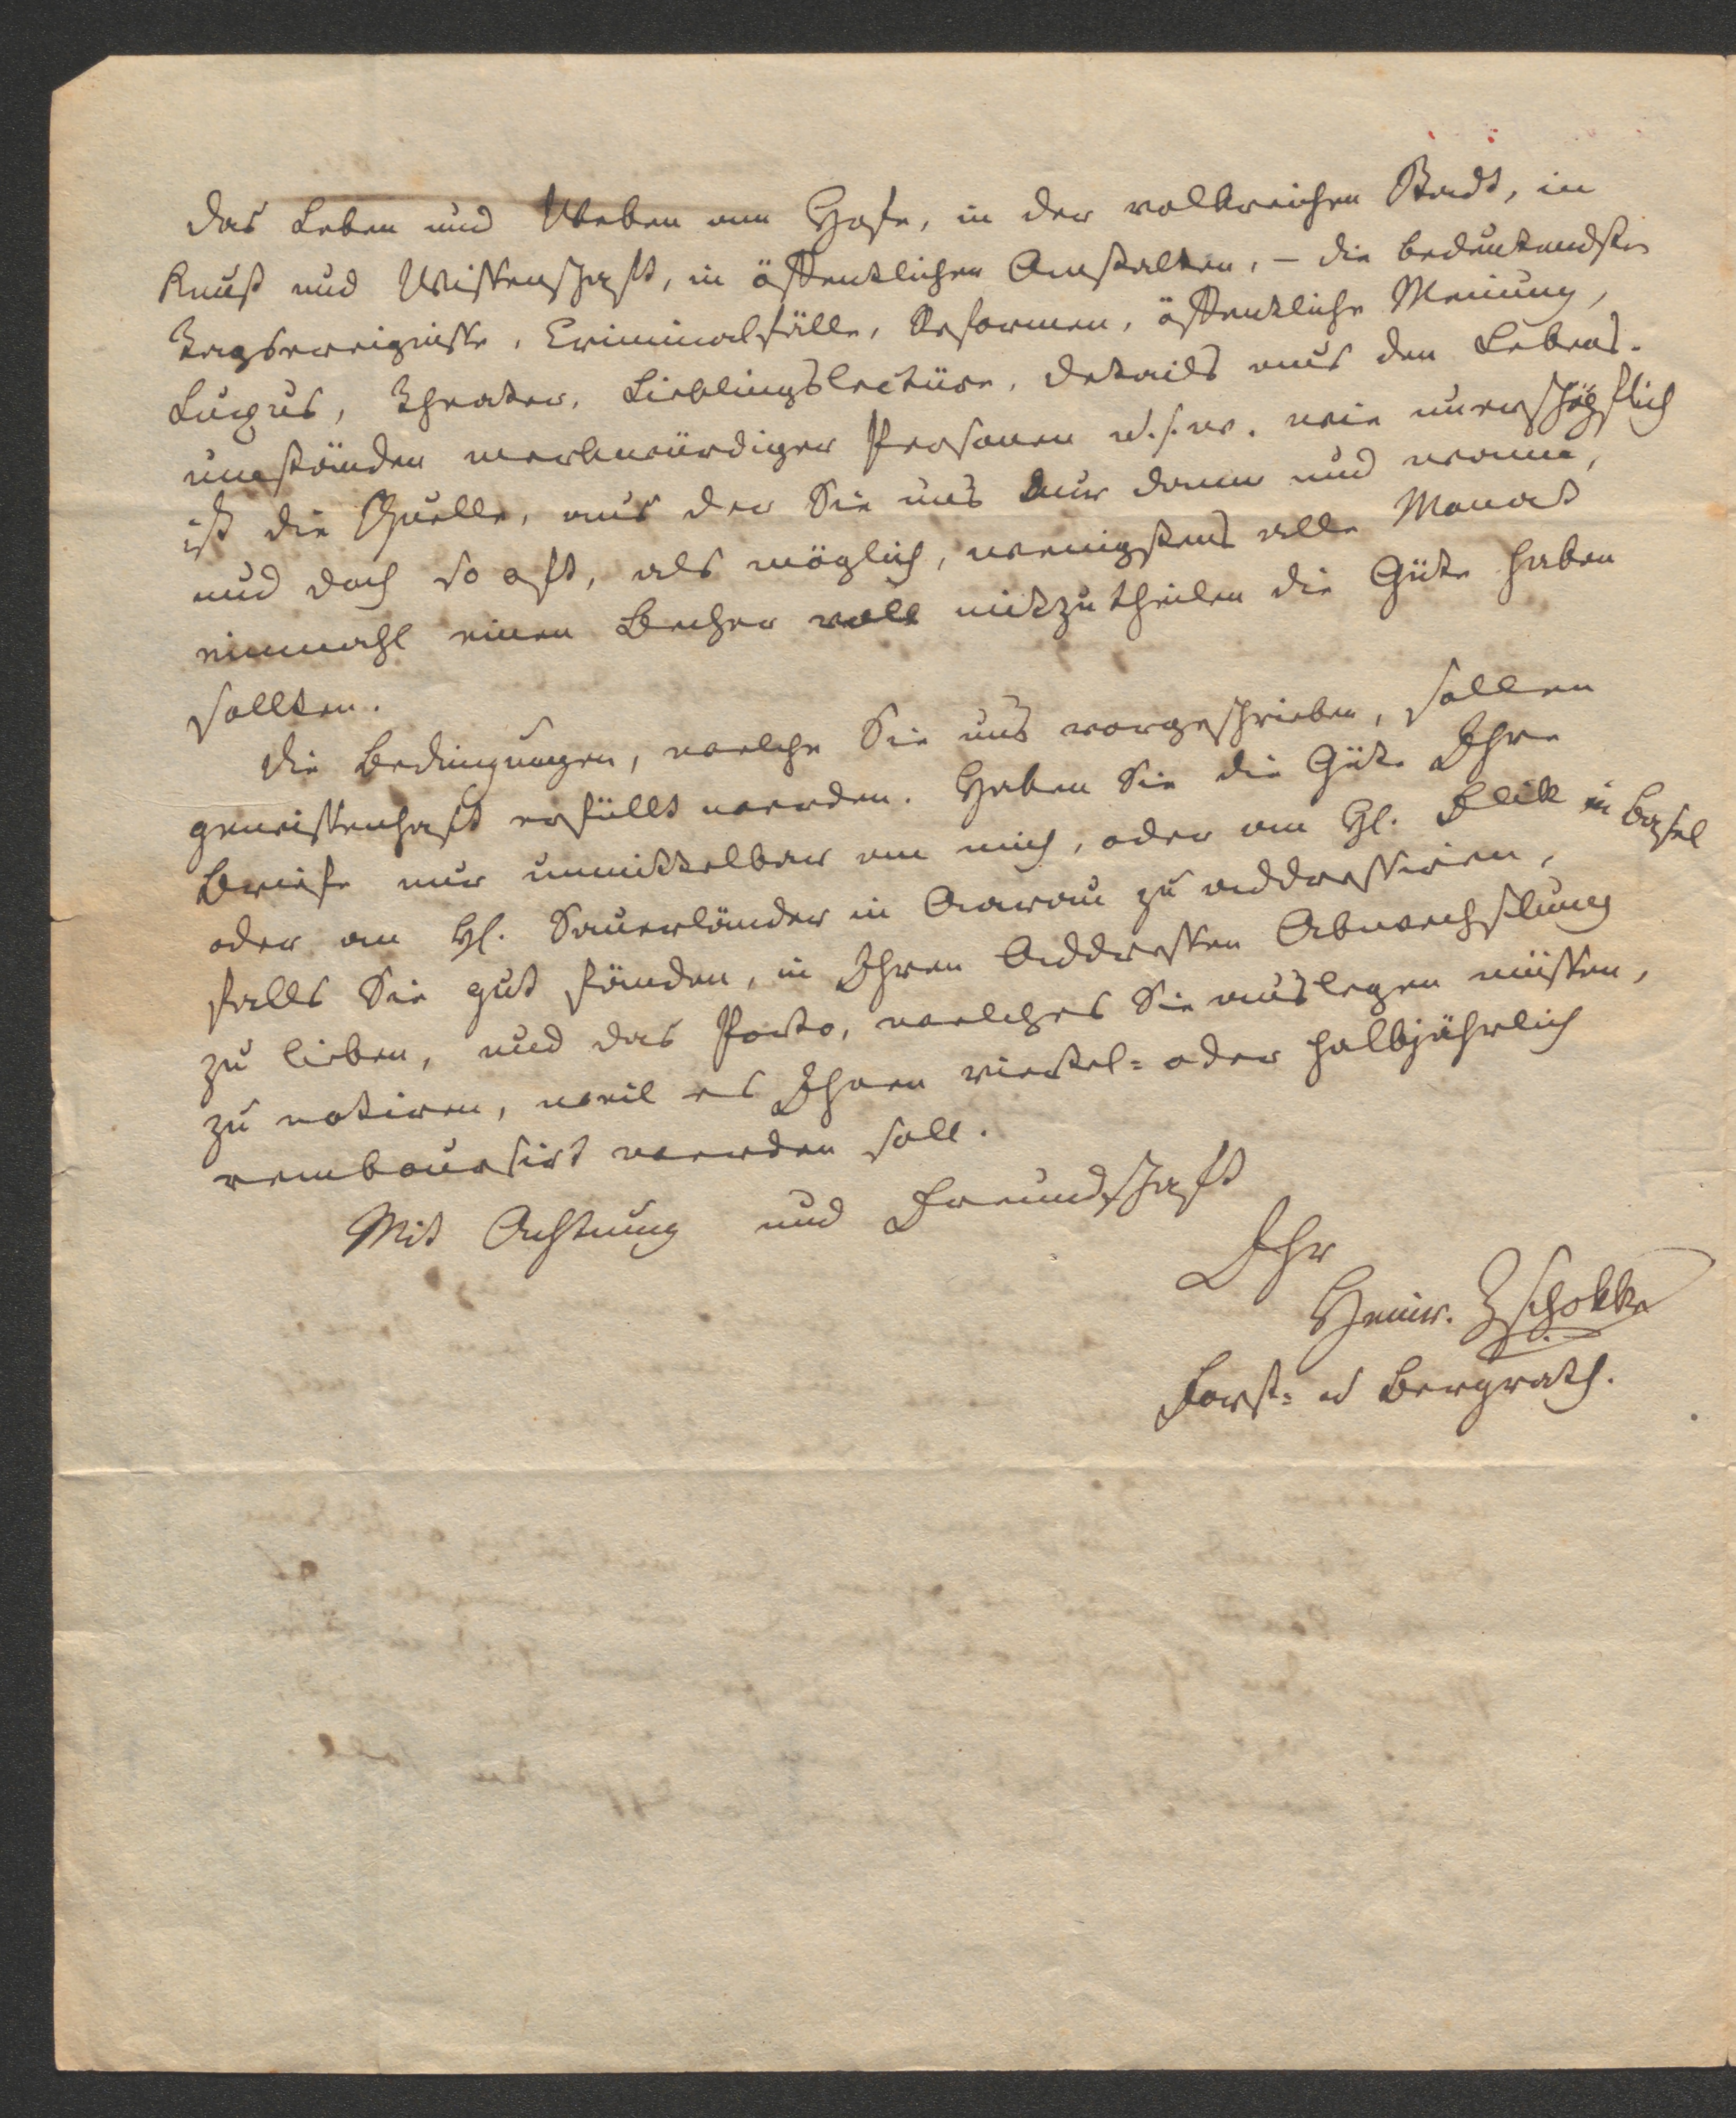 das Leben und Weben am Hofe, in der volkreichen Stadt, in
Kunst und Wissenschaft, in öffentlichen Anstalten, – die bedeutendsten
Tagsereignisse, Criminalfälle, Reformen, öffentliche Meinung,
Luxus, Theater, Lieblingslectüre, Details aus den Lebens-
umständen merkwürdiger Personen u.s.w. wie unerschöpflich
ist die Quelle, aus der Sie uns nur dann und wann,
und doch so oft, als möglich, wenigstens alle Monat
einmahl einen Becher voll mitzutheilen die Güte haben
sollten.
Die Bedingungen, welche Sie uns vorgeschrieben, sollen
gewissenhaft erfüllt werden. Haben Sie die Güte Ihre
Briefe nur unmittelbar an mich, oder an Hl. Flick in Basel
oder an Hl. Sauerländer in Aarau zu addressiren,
falls Sie gut fänden, in Ihren Addressen Abwechslung
zu lieben, und das Porto, welches Sie auslegen müssen,
zu notiren, weil es Ihnen viertel- oder halbjährlich
remboursirt werden soll.
Mit Achtung und Freundschaft
Ihr
Heinr. Zschokke
Forst- u Bergrath.